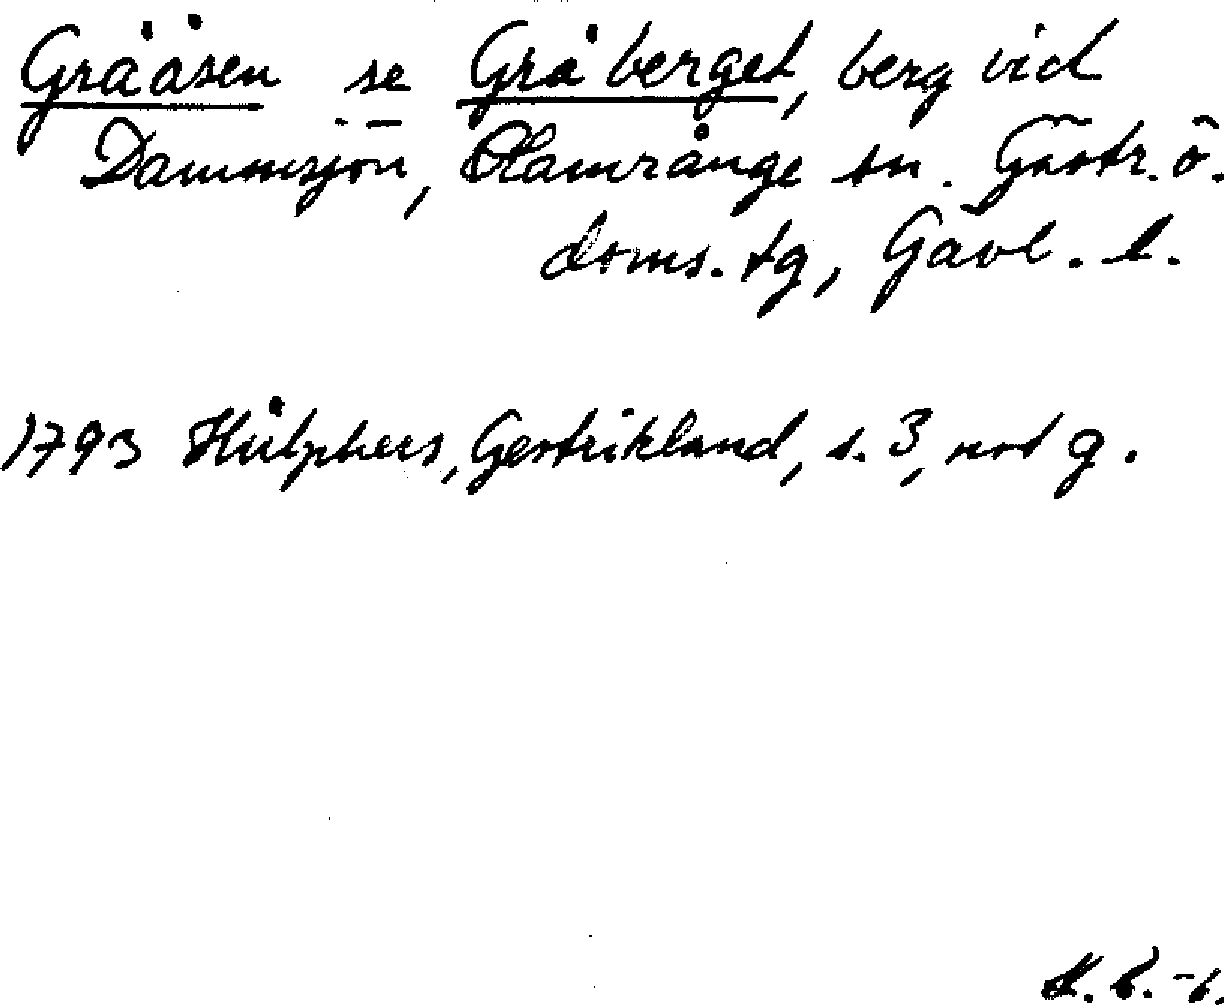 Grååsen se Gråberget, berg vid
Dammsjön, Hamrånge sn. Gästr. ö.
doms. tg, Gävl. l.
1793 Hülphers, Gestrikland, s. 3, not g.